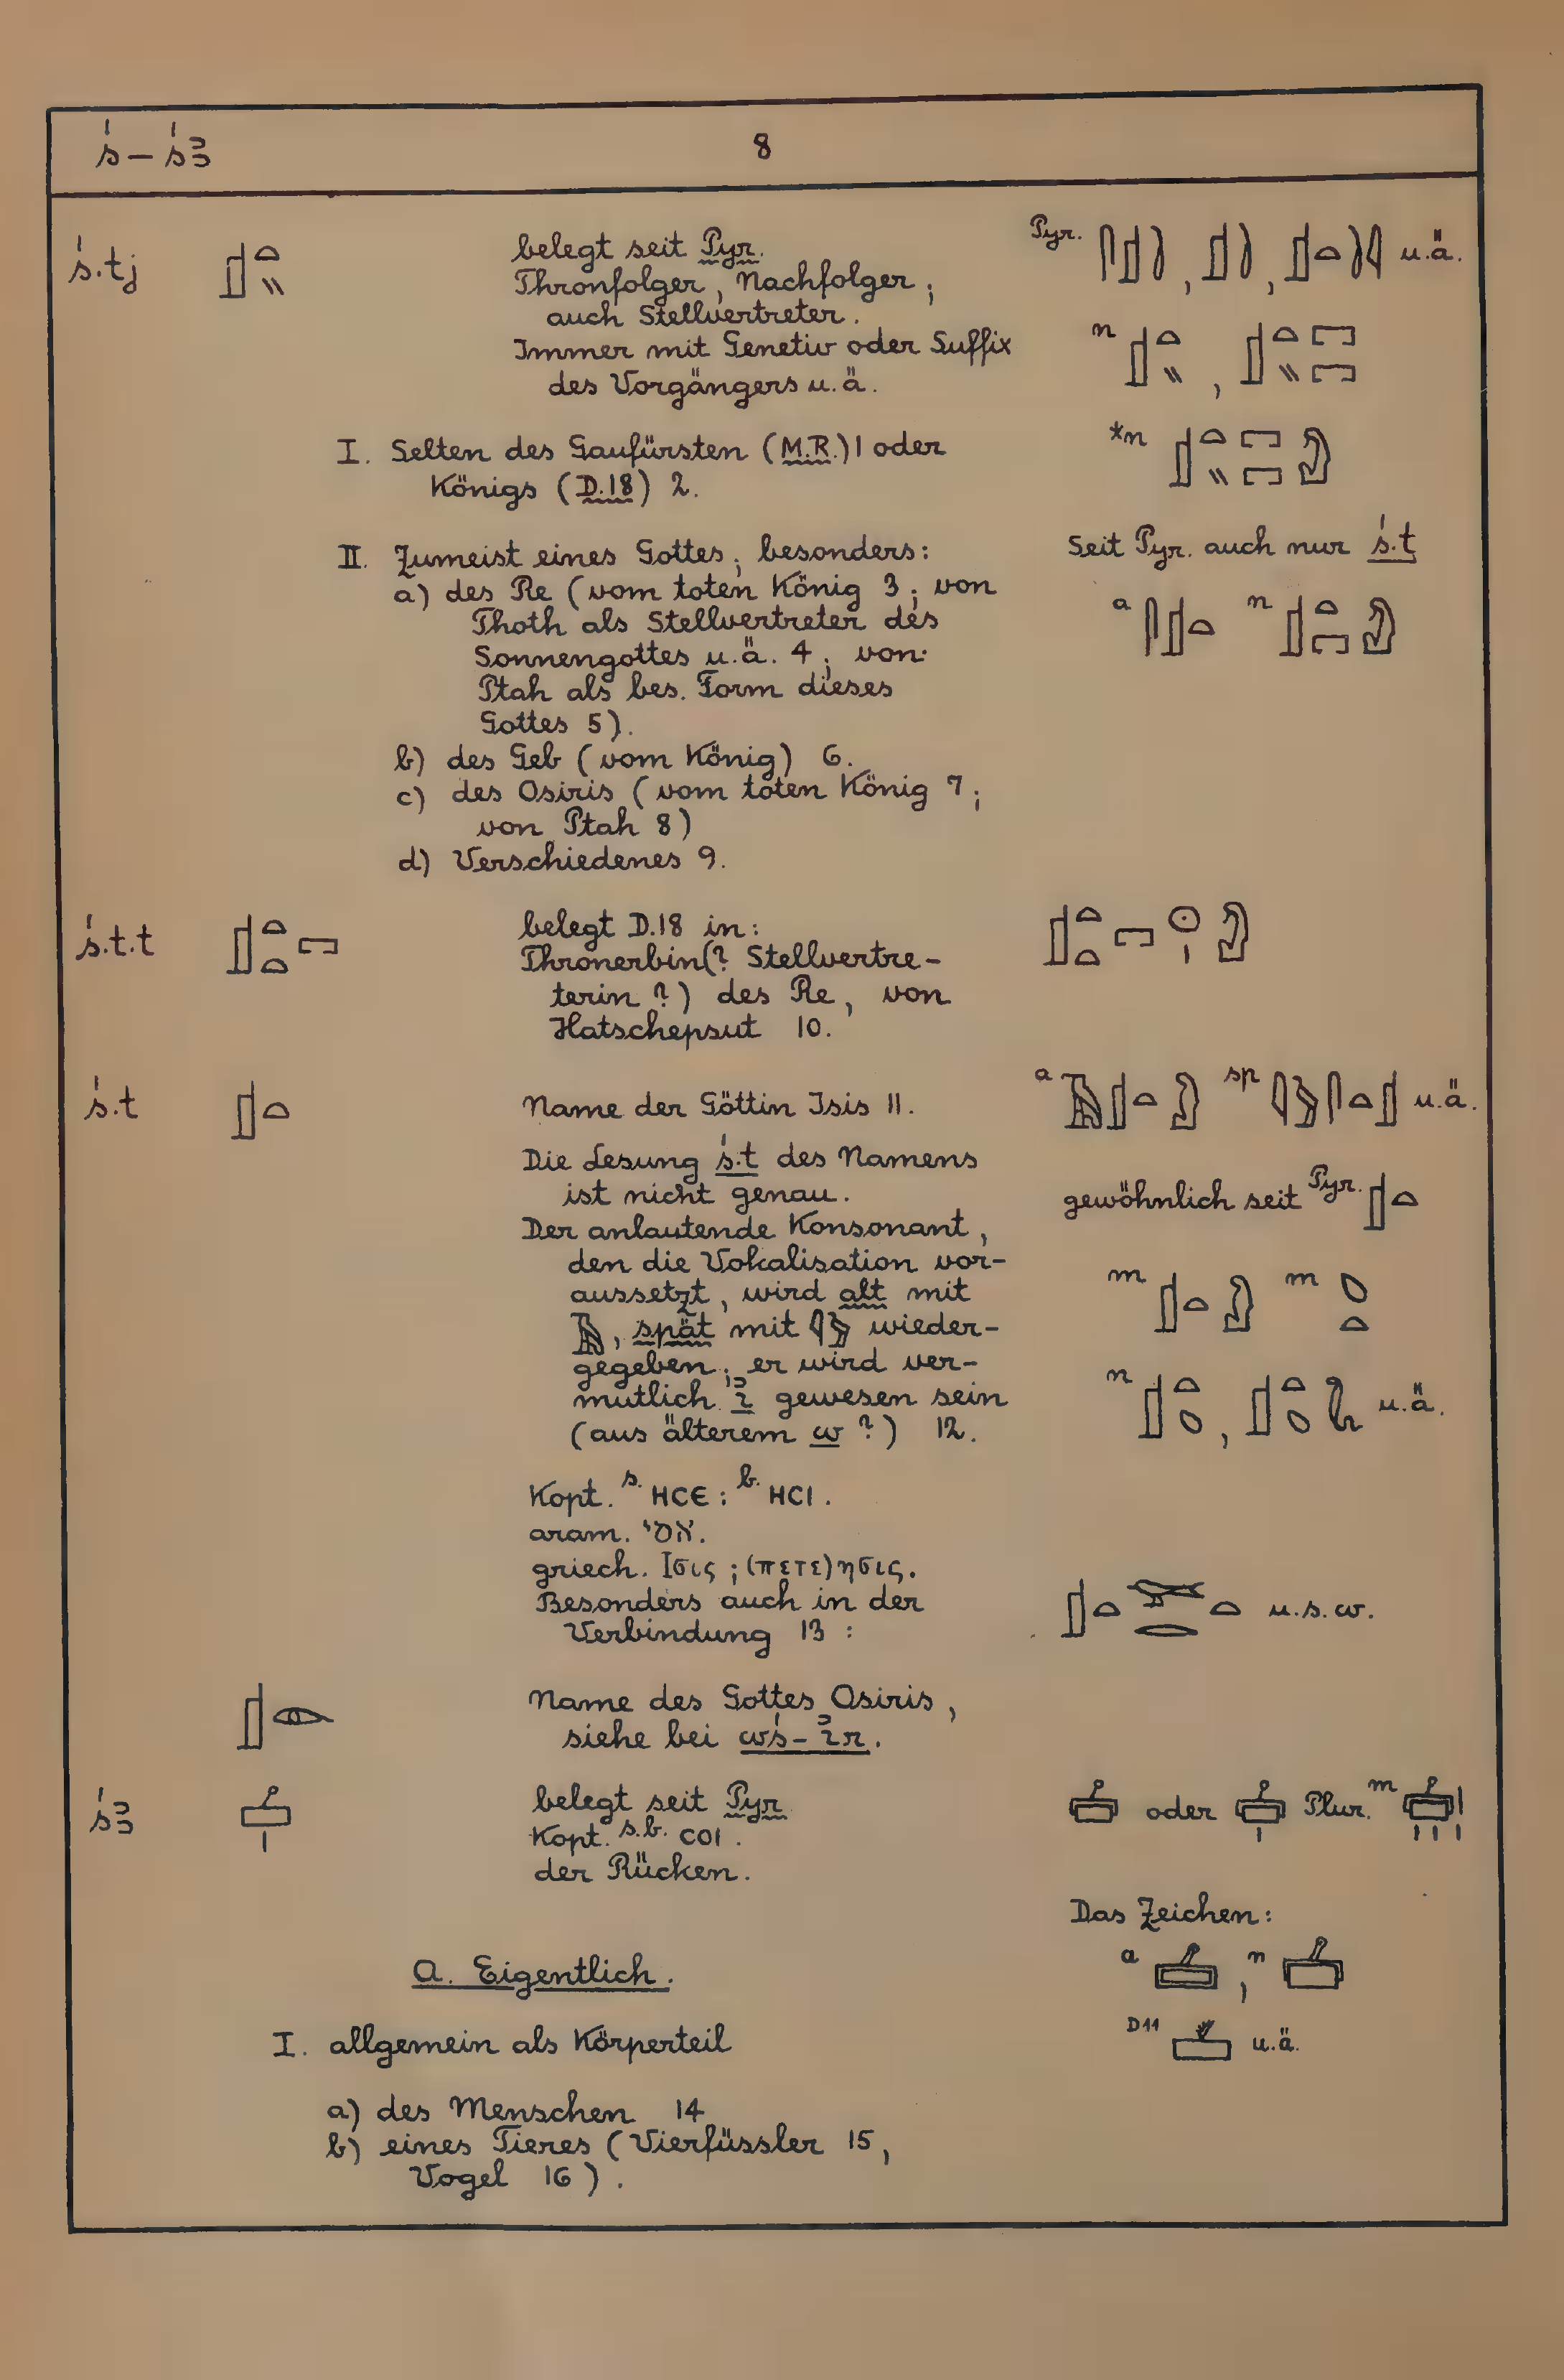 ś – śꜣ 8
ś.tj belegt seit Pyr.
Thronfolger, Nachfolger;
auch Stellvertreter.
Immer mit Genetiv oder Suffix
des Vorgängers u.ä.
Pyr. , , u.ä.
n ,
*n
I. Selten des Gaufürsten (M.R.) 1 oder
Königs (D.18) 2.
II. Zumeist eines Gottes; besonders:
a) des Re (vom toten König 3; von
Thoth als Stellvertreter des
Sonnengottes u.ä. 4; von
Ptah als bes. Form dieses
Gottes 5).
b) des Geb (vom König) 6.
c) des Osiris (vom toten König 7;
von Ptah 8)
d) Verschiedenes 9.
Seit Pyr. auch nur ś.t
a n
ś.t.t belegt D.18 in:
Thronerbin(? Stellvertre-
terin ?) des Re, von
Hatschepsut 10.
ś.t Name der Göttin Isis 11.
Die Lesung ś.t des Namens
ist nicht genau.
Der anlautende Konsonant,
den die Vokalisation vor-
aussetzt, wird alt mit
, spät mit wieder-
gegeben; er wird ver-
mutlich ꞽ gewesen sein
(aus älterem w ?) 12.
Kopt. s. ⲏⲥⲉ : b. ⲏⲥⲓ.
aram. אסי.
griech. Ισις ; (πετε)ησις.
Besonders auch in der
Verbindung 13 :
a sp u.ä.
gewöhnlich seit Pyr.
m m
n , u.ä.
u.s.w.
Name des Gottes Osiris,
siehe bei wś-ꞽr.
śꜣ belegt seit Pyr.
Kopt. s.b. ⲥⲟⲓ.
der Rücken.
oder Plur. m
Das Zeichen:
a , n
D11 u.ä.
A. Eigentlich.
I. allgemein als Körperteil
a) des Menschen 14
b) eines Tieres (Vierfüssler 15,
Vogel 16).